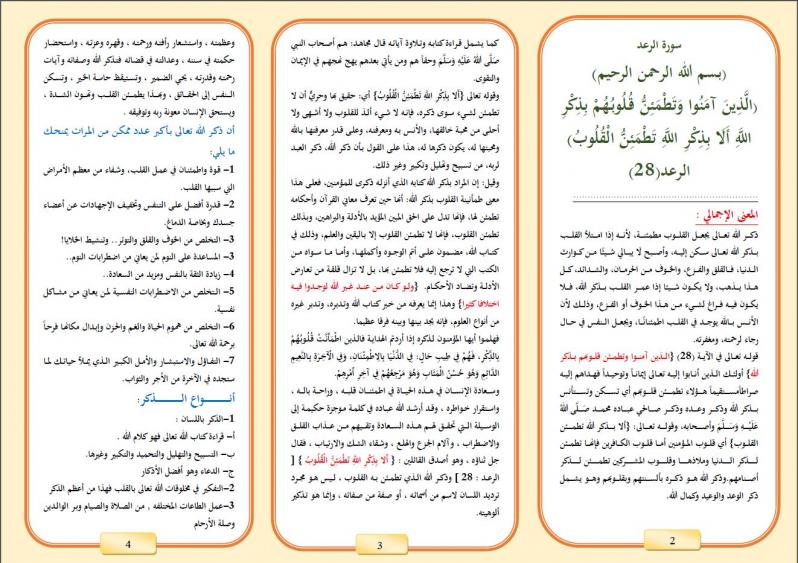 سورة الرعد
(بسم الله الرحمن الرحيم)
(الَّذِينَ آمَنُوا وَتَطْمَئِنُّ قُلُوبُهُمْ بِذِكْرِ
اللَّهِ أَلَا بِذِكْرِ اللَّهِ تَطْمَئِنُّ الْقُلُوبُ)
الرعد(28)
المعنى الإجمالي :
ذكر الله تعالى يجعل القلوب مطمئنة، لأنه إذا امتلأ القلب
بذكر الله تعالى سكن إليه، وأصبح لا يبالي شيئًا من كوارث
الدنيا، فالقلق والفزع، والخوف من الحرمان، والشدائد، كل
هذا يذهب، ولا يكون شيئا إذا عمر القلب بذكر الله، فلا
يكون فيه فراغ لشيء من هذا الخوف أو الفزع، وذلك لأن
الأنس بالله يوجد في القلب اطمئنانًا، ويجعل النفس في حال
رجاء لرحمته، ومغفرته.
قوله تعالى في الآية (28) {الذين آمنوا وتطمئن قلوبهم بذكر
الله} أولئك الذين أنابوا إليه تعالى إيماناً وتوحيداً فهداهم إليه
صراطاًمستقيماً هؤلاء تطمئن قلوبهم أي تسكن وتستأنس
بذكر الله وذكر وعده وذكر صالحي عباده محمد صَلَّى اللَّهُ
عَلَيْهِ وَسَلَّمَ وأصحابه، وقوله تعالى: {ألا بذكر الله تطمئن
القلوب} أي قلوب المؤمنين أما قلوب الكافرين فإنها تطمئن
لذكر الدنيا وملاذها وقلوب المشركين تطمئن لذكر
أصنامهم.وذكر الله هو ذكره بألسنتهم وبقلوبهم وهو يشمل
ذكر الوعد والوعيد وكمال الله.
2
كما يشمل قراءة كتابه وتلاوة آياته قال مجاهد: هم أصحاب النبي
صَلَّى اللَّهُ عَلَيْهِ وَسَلَّمَ وحقاً هم ومن يأتي بعدهم يهج نهجهم في الإيمان
والتقوى.
وقوله تعالى {أَلا بِذِكْرِ اللَّهِ تَطْمَئِنُّ الْقُلُوبُ} أي: حقيق بها وحريٌّ أن لا
تطمئن لشيء سوى ذكره، فإنه لا شيء ألذ للقلوب ولا أشهى ولا
أحلى من محبة خالقها، والأنس به ومعرفته، وعلى قدر معرفتها بالله
ومحبتها له، يكون ذكرها له، هذا على القول بأن ذكر الله، ذكر العبد
لربه، من تسبيح وتهليل وتكبير وغير ذلك.
وقيل: إن المراد بذكر الله كتابه الذي أنزله ذكرى للمؤمنين، فعلى هذا
معنى طمأنينة القلوب بذكر الله: أنها حين تعرف معاني القرآن وأحكامه
تطمئن لها، فإنها تدل على الحق المبين المؤيد بالأدلة والبراهين، وبذلك
تطمئن القلوب، فإنها لا تطمئن القلوب إلا باليقين والعلم، وذلك في
كتاب الله، مضمون على أتم الوجوه وأكملها، وأما ما سواه من
الكتب التي لا ترجع إليه فلا تطمئن بها، بل لا تزال قلقة من تعارض
الأدلة وتضاد الأحكام. {ولو كان من عند غير الله لوجدوا فيه
اختلافا كثيرا} وهذا إنما يعرفه من خبر كتاب الله وتدبره، وتدبر غيره
من أنواع العلوم، فإنه يجد بينها وبينه فرقا عظيما.
فهلموا أيها المؤمنون لذكره إذا أردتم الهداية فالذين اطْمَأَنَّتْ قُلُوبُهُمْ
بِالذِّكْرِ، فَهُمْ فِي طِيبِ حَالٍ: فِي الدُّنْيَا بِالِاطْمِئْنَانِ، وَفِي الْآخِرَةِ بِالنَّعِيمِ
الدَّائِمِ وَهُوَ حُسْنُ الْمَئَابِ وَهُوَ مَرْجِعُهُمْ فِي آخِرِ أَمْرِهِمْ.
وسعادة الإنسان في هذه الحياة في اطمئنان قلبه ، وراحة باله ،
واستقرار خواطره ، وقد أرشد الله عباده في كلمة موجزة حكيمة إلى
الوسيلة التي تحقق لهم هذه السعادة وتقيهم من عذاب القلق
والاضطراب ، وآلام الجزع والهلع ، وشقاء الشك والارتياب ، فقال
جل ثناؤه ، وهو أصدق القائلين : { أَلا بِذِكْرِ اللَّهِ تَطْمَئِنُّ الْقُلُوبُ } [
الرعد : 28 ] وذكر الله الذي تطمئن به القلوب ، ليس هو مجرد
ترديد اللسان لاسم من أسمائه ، أو صفة من صفاته ، وإنما هو تذكير
ألوهيته.
3
وعظمته ، واستشعار رأفته ورحمته ، وقهره وعزته ، واستحضار
حكمته في سننه ، وعدالته في قضائه فتذكر الله وصفاته وآيات
رحمته وقدرته ، يحي الضمير ، وتستيقظ حاسة الخير ، وتسكن
النفس إلى الحقائق ، وبهذا يطمئن القلب وتهون الشدة ،
ويستحق الإنسان معونة ربه وتوفيقه .
أن ذكر الله تعالى بأكبر عدد ممكن من المرات يمنحك
ما يلي:
1– قوة واطمئنان في عمل القلب، وشفاء من معظم الأمراض
التي سببها القلب.
2– قدرة أفضل على التنفس وتخفيف الإجهادات عن أعضاء
جسدك وبخاصة الدماغ.
3– التخلص من الخوف والقلق والتوتر.. وتنشيط الخلايا!
3– المساعدة على النوم لمن يعاني من اضطرابات النوم..
4– زيادة الثقة بالنفس ومزيد من السعادة..
5– التخلص من الاضطرابات النفسية لمن يعاني من مشاكل
نفسية.
6– التخلص من هموم الحياة والغم والحزن وإبدال مكانها فرحاً
برحمة الله تعالى.
7– التفاؤل والاستبشار والأمل الكبير الذي يملأ حياتك لما
ستجده في الآخرة من الأجر والثواب.
أنـــواع الـــــذكر:
1–الذكر باللسان :
أ– قراءة كتاب الله تعالى فهو كلام الله .
ب– التسبيح والتهليل والتحميد والتكبير وغيرها.
ج– الدعاء وهو أفضل الأذكار
2–التفكير في مخلوقات الله تعالى بالقلب فهذا من أعظم الذكر
3–عمل الطاعات المختلفه , من الصلاة والصيام وبر الوالدين
وصلة الأرحام
4